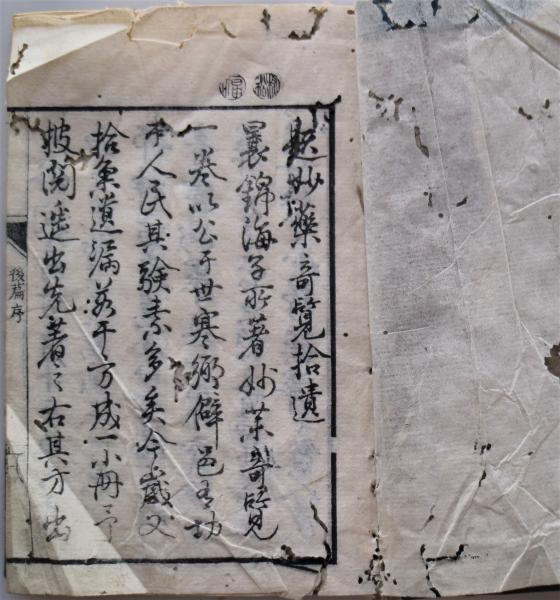 題妙藥奇覧拾遺
曩錦海子所著妙薬奇覧
一巻以公于世寒郷僻邑有功
于人民其験素多矣今歳又
拾集遺漏若干方成一小冊予
披閲遥出先著之右其方出
後篇序